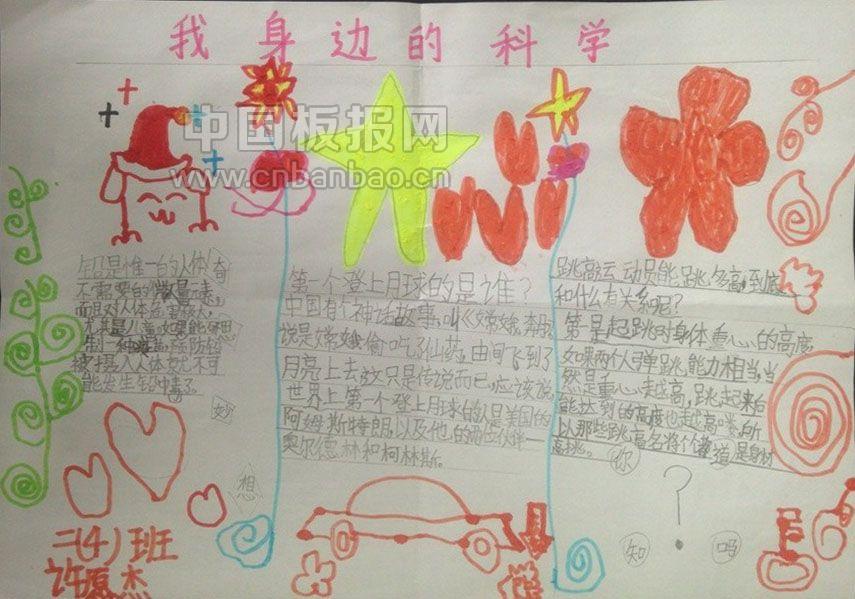 我身边的科学
中国板报网
www.cnbanbao.cn
铅是惟一的人体
不需要的微量元素,
而且对人体危害极大,
尤其是儿童,如果能
制一种
被摄入人体就不可
能发生铅中毒了。
奇
妙
想
第一个登上月球的是谁?
中国有个神话故事,叫《嫦娥奔月》
说是嫦娥偷吃了仙药,由间飞到了
月亮上去,这只是传说而已,应该说,
世界上第一个登上月球的,是美国的
阿姆斯特朗,以及他的两位伙伴—
奥尔德林和柯林斯。
跳高运动员能跳多高,到底
和什么有关系呢?
第一是起跳时身体重心的高度,
如果两个人弹跳能力相当,当
然是重心越高,跳起来后
能达到的高度也越高喽,所
以那些跳高名将个个都是身材
高挑。
你
知
道
吗
?
二(4)班
许原杰